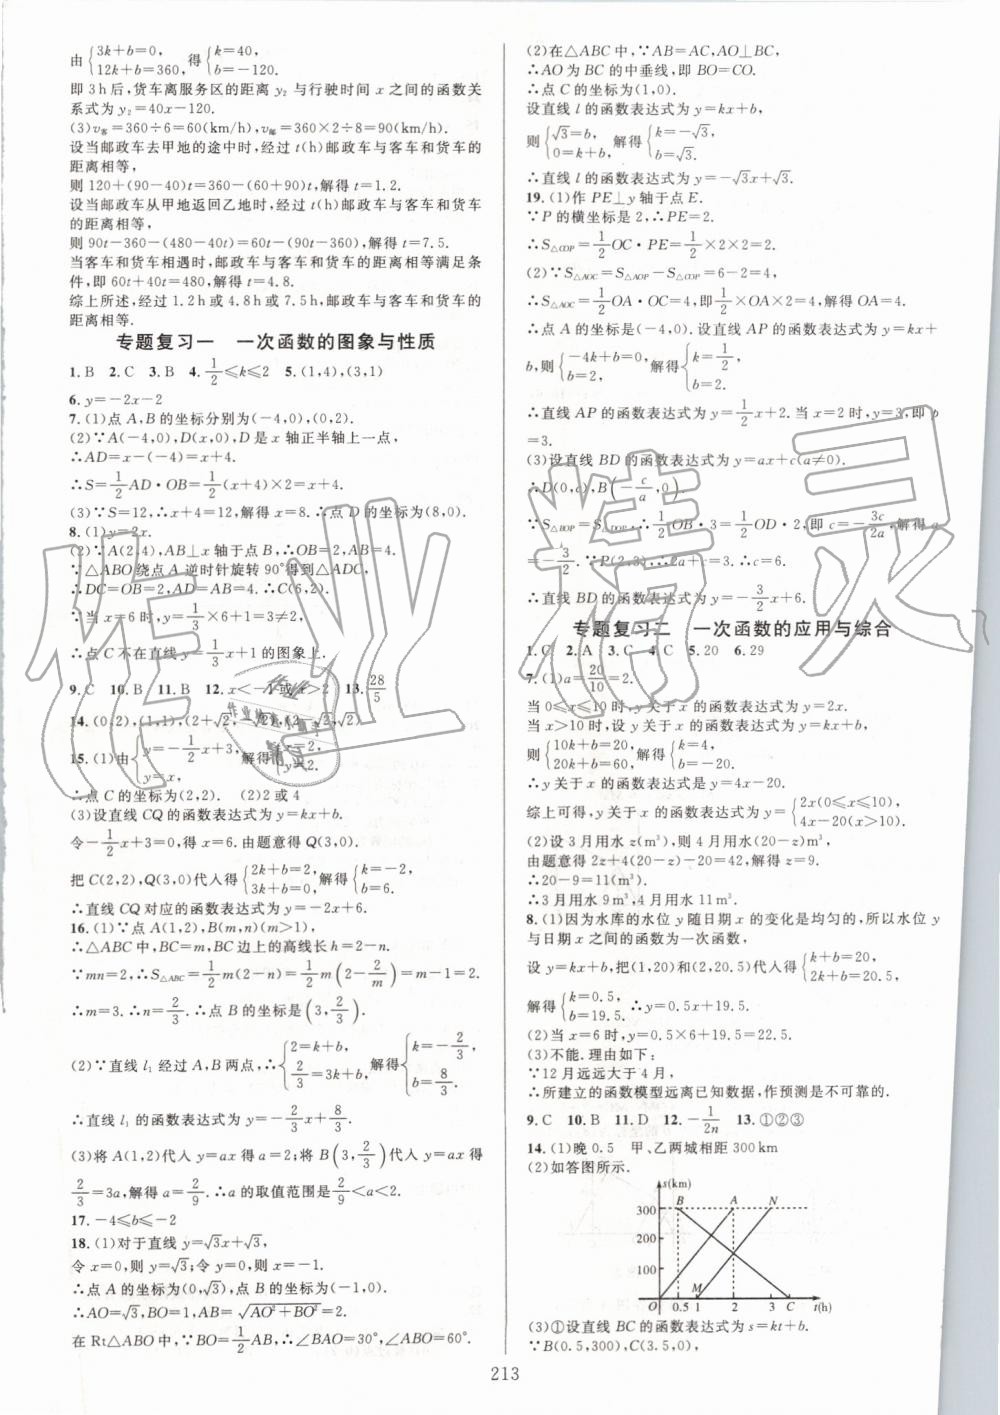 由{3k+b=0, 12k+b=360, 得{k=40, b=-120.
即 3 h后,货车离服务区的距离 y₂ 与行驶时间 x 之间的函数关
系式为 y₂=40x-120.
(3)v客=360÷6=60(km/h),v邮=360×2÷8=90(km/h).
设当邮政车去甲地的途中时,经过 t(h)邮政车与客车和货车的
距离相等,
则 120+(90-40)t=360-(60+90)t,解得 t=1.2.
设当邮政车从甲地返回乙地时,经过 t(h)邮政车与客车和货车
的距离相等,
则 90t-360-(480-40-60)t=60t+(90t-360),解得 t=7.5.
当客车和货车相遇时,邮政车与客车和货车的距离相等满足条
件,即 60t+40t=480,解得 t=4.8.
综上所述,经过 1.2 h 或 4.8 h 或 7.5 h,邮政车与客车和货车的
距离相等.
专题复习一 一次函数的图象与性质
1. B 2. C 3. B 4. 1/2≤k≤2 5. (1,4),(3,1)
6. y=-2x-2
7. (1)点 A,B 的坐标分别为(-4,0),(0,2).
(2)∵A(-4,0),D(x,0),D 是 x 轴正半轴上一点,
∴AD=x-(-4)=x+4.
∴S=1/2AD·OB=1/2(x+4)×2=x+4.
(3)∵S=12,∴x+4=12,解得 x=8.∴点 D 的坐标为(8,0).
8. (1)y=2x.
(2)∵A(2,4),AB⊥x 轴于点 B,∴OB=2,AB=4.
∵△ABO绕点 A 逆时针旋转 90°得到△ADC,
∴DC=OB=2,AD=AB=4.∴C(6,2).
∵当 x=6时,y=1/3×6+1=3≠2,
∴点 C 不在直线 y=1/3x+1的图象上.
9. C 10. B 11. B 12. x<-1或x>2 13. 28/5
14. (0,2),(1,1),(2+√2,-√2),(2-√2,√2)
15. (1)由{y=-1/2x+3, y=x, 解得{x=2, y=2.
∴点 C 的坐标为(2,2). (2)2 或 4
(3)设直线 CQ 的函数表达式为 y=kx+b.
令-1/2x+3=0,得 x=6.由题意得 Q(3,0).
把 C(2,2),Q(3,0)代入得{2k+b=2, 3k+b=0, 解得{k=-2, b=6.
∴直线 CQ 对应的函数表达式为 y=-2x+6.
16. (1)∵点 A(1,2),B(m,n)(m>1),
∴△ABC 中,BC=m,BC 边上的高线长 h=2-n.
∵mn=2,∴S△ABC=1/2m(2-n)=1/2m(2-2/m)=m-1=2.
∴m=3.∴n=2/3.∴点 B 的坐标是(3,2/3).
(2)∵直线 l₁ 经过 A,B 两点,∴{2=k+b, 2/3=3k+b, 解得{k=-2/3, b=8/3.
∴直线 l₁ 的函数表达式为 y=-2/3x+8/3.
(3)将 A(1,2)代入 y=ax 得 a=2;将 B(3,2/3)代入 y=ax 得
2/3=3a,解得 a=2/9.∴a 的取值范围是2/9<a<2.
17. -4≤b≤-2
18. (1)对于直线 y=√3x+√3,
令 x=0,则 y=√3;令 y=0,则 x=-1.
∴点 A 的坐标为(0,√3),点 B 的坐标为(-1,0).
∴AO=√3,BO=1,AB=√(AO²+BO²)=2.
在 Rt△ABO中,∵BO=1/2AB,∴∠BAO=30°,∠ABO=60°.
(2)在△ABC 中,∵AB=AC,AO⊥BC,
∴AO为 BC 的中垂线,即 BO=CO.
∴点 C 的坐标为(1,0).
设直线 l 的函数表达式为 y=kx+b,
则{√3=b, 0=k+b, 解得{k=-√3, b=√3.
∴直线 l 的函数表达式为 y=-√3x+√3.
19. (1)作 PE⊥y 轴于点 E.
∵P 的横坐标是 2,∴PE=2.
∴S△COP=1/2OC·PE=1/2×2×2=2.
(2)∵S△AOC=S△AOP-S△COP=6-2=4,
∴S△AOC=1/2OA·OC=4,即1/2×OA×2=4,解得 OA=4.
∴点 A 的坐标是(-4,0).设直线 AP 的函数表达式为 y=kx+
b,则{-4k+b=0, b=2, 解得{k=1/2, b=2.
∴直线 AP 的函数表达式为 y=1/2x+2.当 x=2 时,y=3,即 p
=3.
(3)设直线 BD 的函数表达式为 y=ax+c(a≠0).
∴D(0,c),B(-c/a,0).
∵S△BOP=S△DOP,∴1/2OB·3=1/2OD·2,即 c=-3c/2a,解得 a
=-3/2.∵P(2,3),∴2a+c=3.∴c=6.
∴直线 BD 的函数表达式为 y=-3/2x+6.
专题复习二 一次函数的应用与综合
1. C 2. A 3. C 4. C 5. 20 6. 29
7. (1)a=20/10=2.
当 0≤x≤10 时,y 关于 x 的函数表达式为 y=2x.
当 x>10 时,设 y 关于 x 的函数表达式为 y=kx+b,
则{10k+b=20, 20k+b=60, 解得{k=4, b=-20.
∴y 关于 x 的函数表达式是 y=4x-20.
综上可得,y 关于 x 的函数表达式为 y={2x(0≤x≤10), 4x-20(x>10).
(2)设 3 月用水 z(m³),则 4 月用水(20-z)m³.
由题意得 2z+4(20-z)-20=45,解得 z=9.
∴20-9=11(m³).
∴3 月用水 9 m³,4 月用水 11 m³.
8. (1)因为水库的水位 y 随日期 x 的变化是均匀的,所以水位 y
与日期 x 之间的函数为一次函数,
设 y=kx+b,把(1,20)和(2,20.5)代入得{k+b=20, 2k+b=20.5,
解得{k=0.5, b=19.5.∴y=0.5x+19.5.
(2)当 x=6时,y=0.5×6+19.5=22.5.
(3)不能.理由如下:
∵12 月远远大于 4 月,
∴所建立的函数模型远离已知数据,作预测是不可靠的.
9. C 10. B 11. D 12. -1/2n 13. ①②③
14. (1)晚 0.5 甲、乙两城相距 300 km
(2)如答图所示.
s(km)
300 B A N
200
100
M C
O 0.5 1 2 3 t(h)
(3)①设直线 BC 的函数表达式为 s=kt+b.
∵B(0.5,300),C(3.5,0),
213
作业精灵